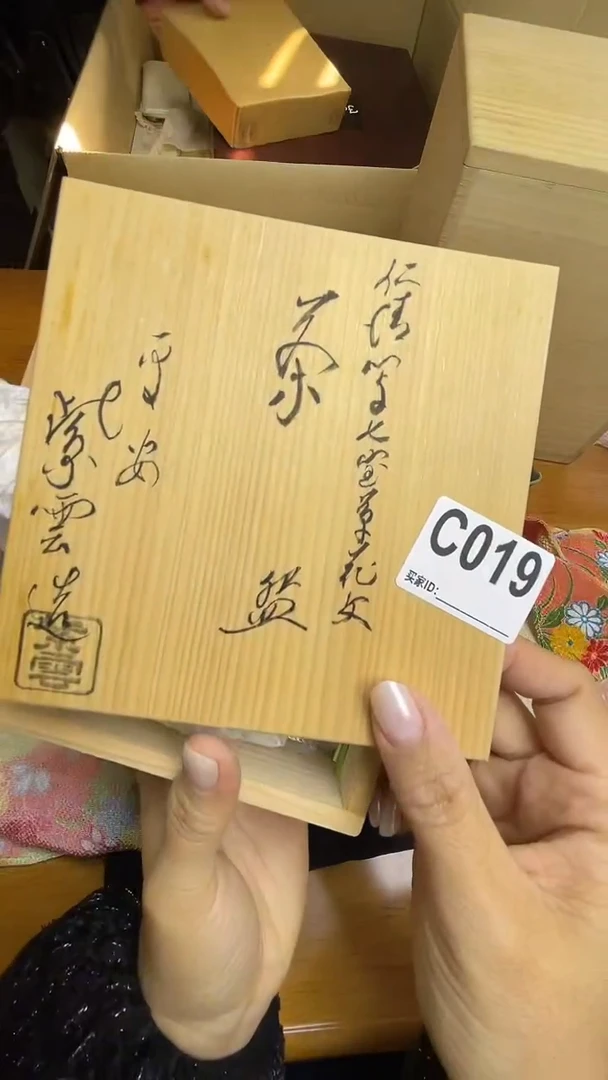 仁清写七宝草花文
茶盌
平安
紫雲造
紫雲
C019
买家ID: